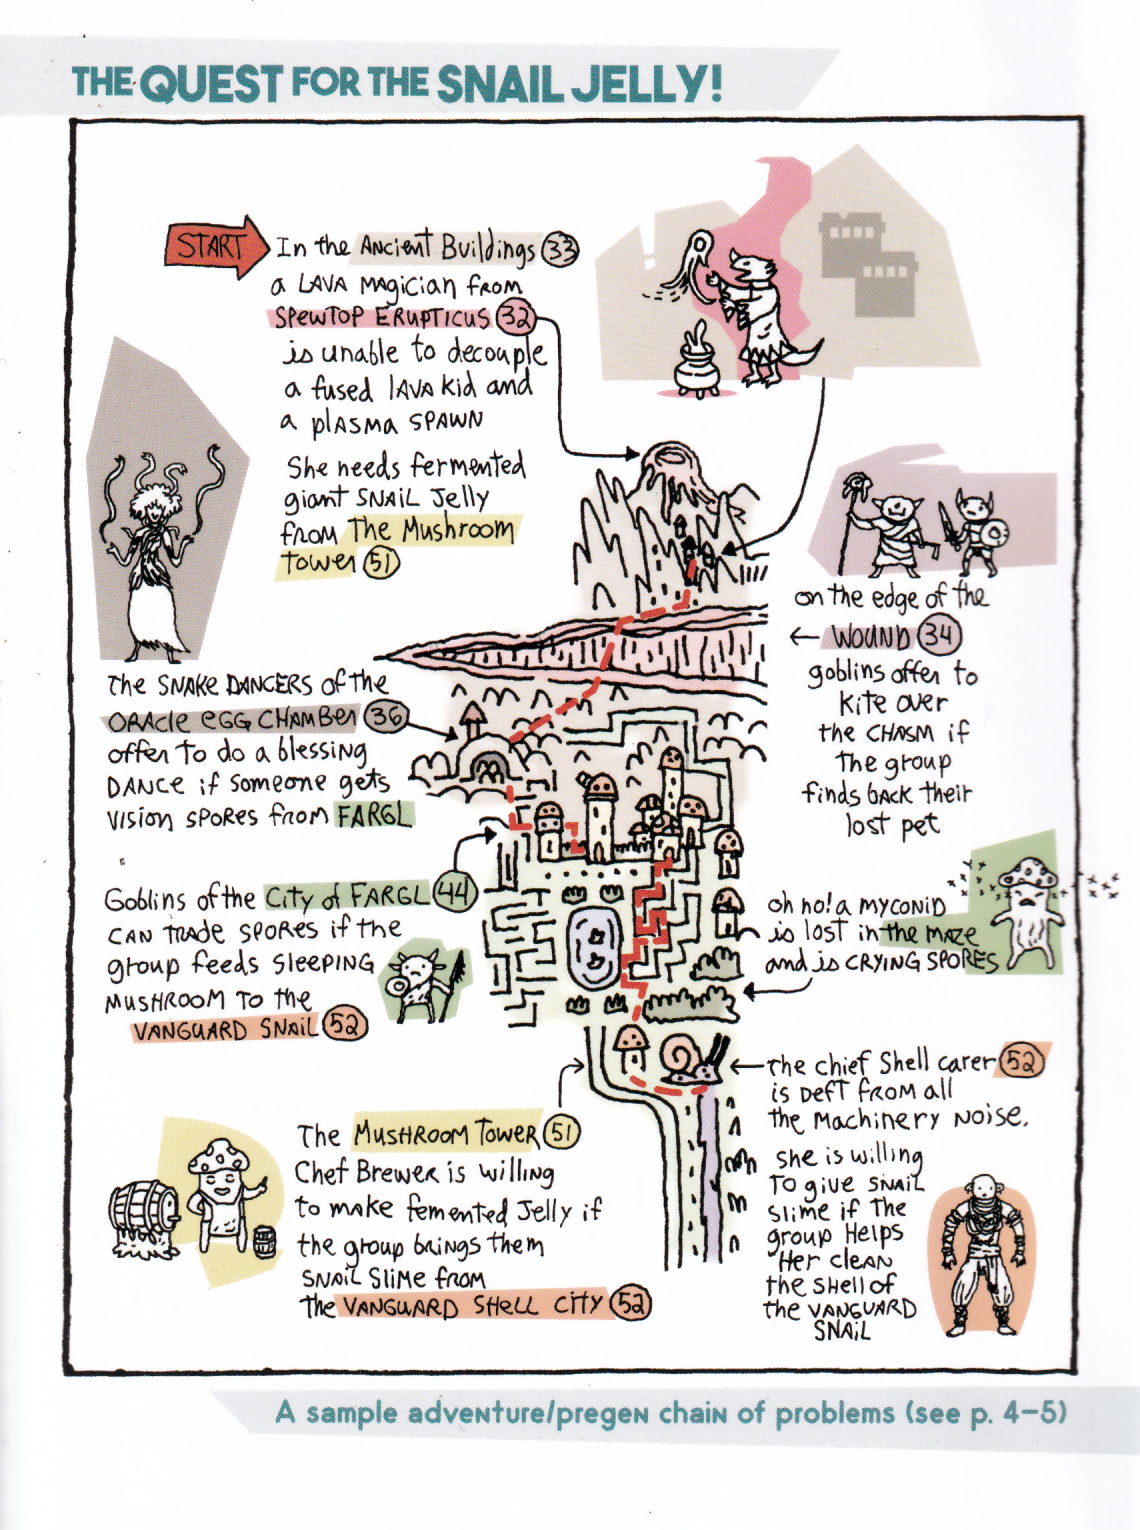 THE QUEST FOR THE SNAIL JELLY!
START
In the Ancient Buildings 33
a LAVA Magician from
Spewtop Erupticus 32
is unable to decouple
a fused LAVA kid and
a plasma spawn
She needs fermented
giant SNAIL Jelly
from The Mushroom
Tower 51
on the edge of the
← WOUND 34
goblins offer to
kite over
the CHASM if
The group
finds back their
lost pet
The SNAKE DANCERS of the
ORACLE EGG CHAMBER 36
offer to do a blessing
DANCE if someone gets
vision spores from FARGL
Goblins of the City of FARGL 44
CAN TRADE SPORES if the
group feeds sleeping
MUSHROOM TO the
VANGUARD SNAIL 52
oh no! a MYCONID
is lost in the maze
and is CRYING SPORES
The Mushroom Tower 51
Chef Brewer is willing
to make femented Jelly if
the group brings them
SNAIL Slime from
the VANGUARD SHELL CITY 52
the chief Shell carer 52
is Deft from all
the Machinery Noise.
she is willing
to give SNAIL
slime if the
group Helps
Her clean
the shell of
the VANGUARD
SNAIL
A sample adventure/pregen chain of problems (see p. 4–5)